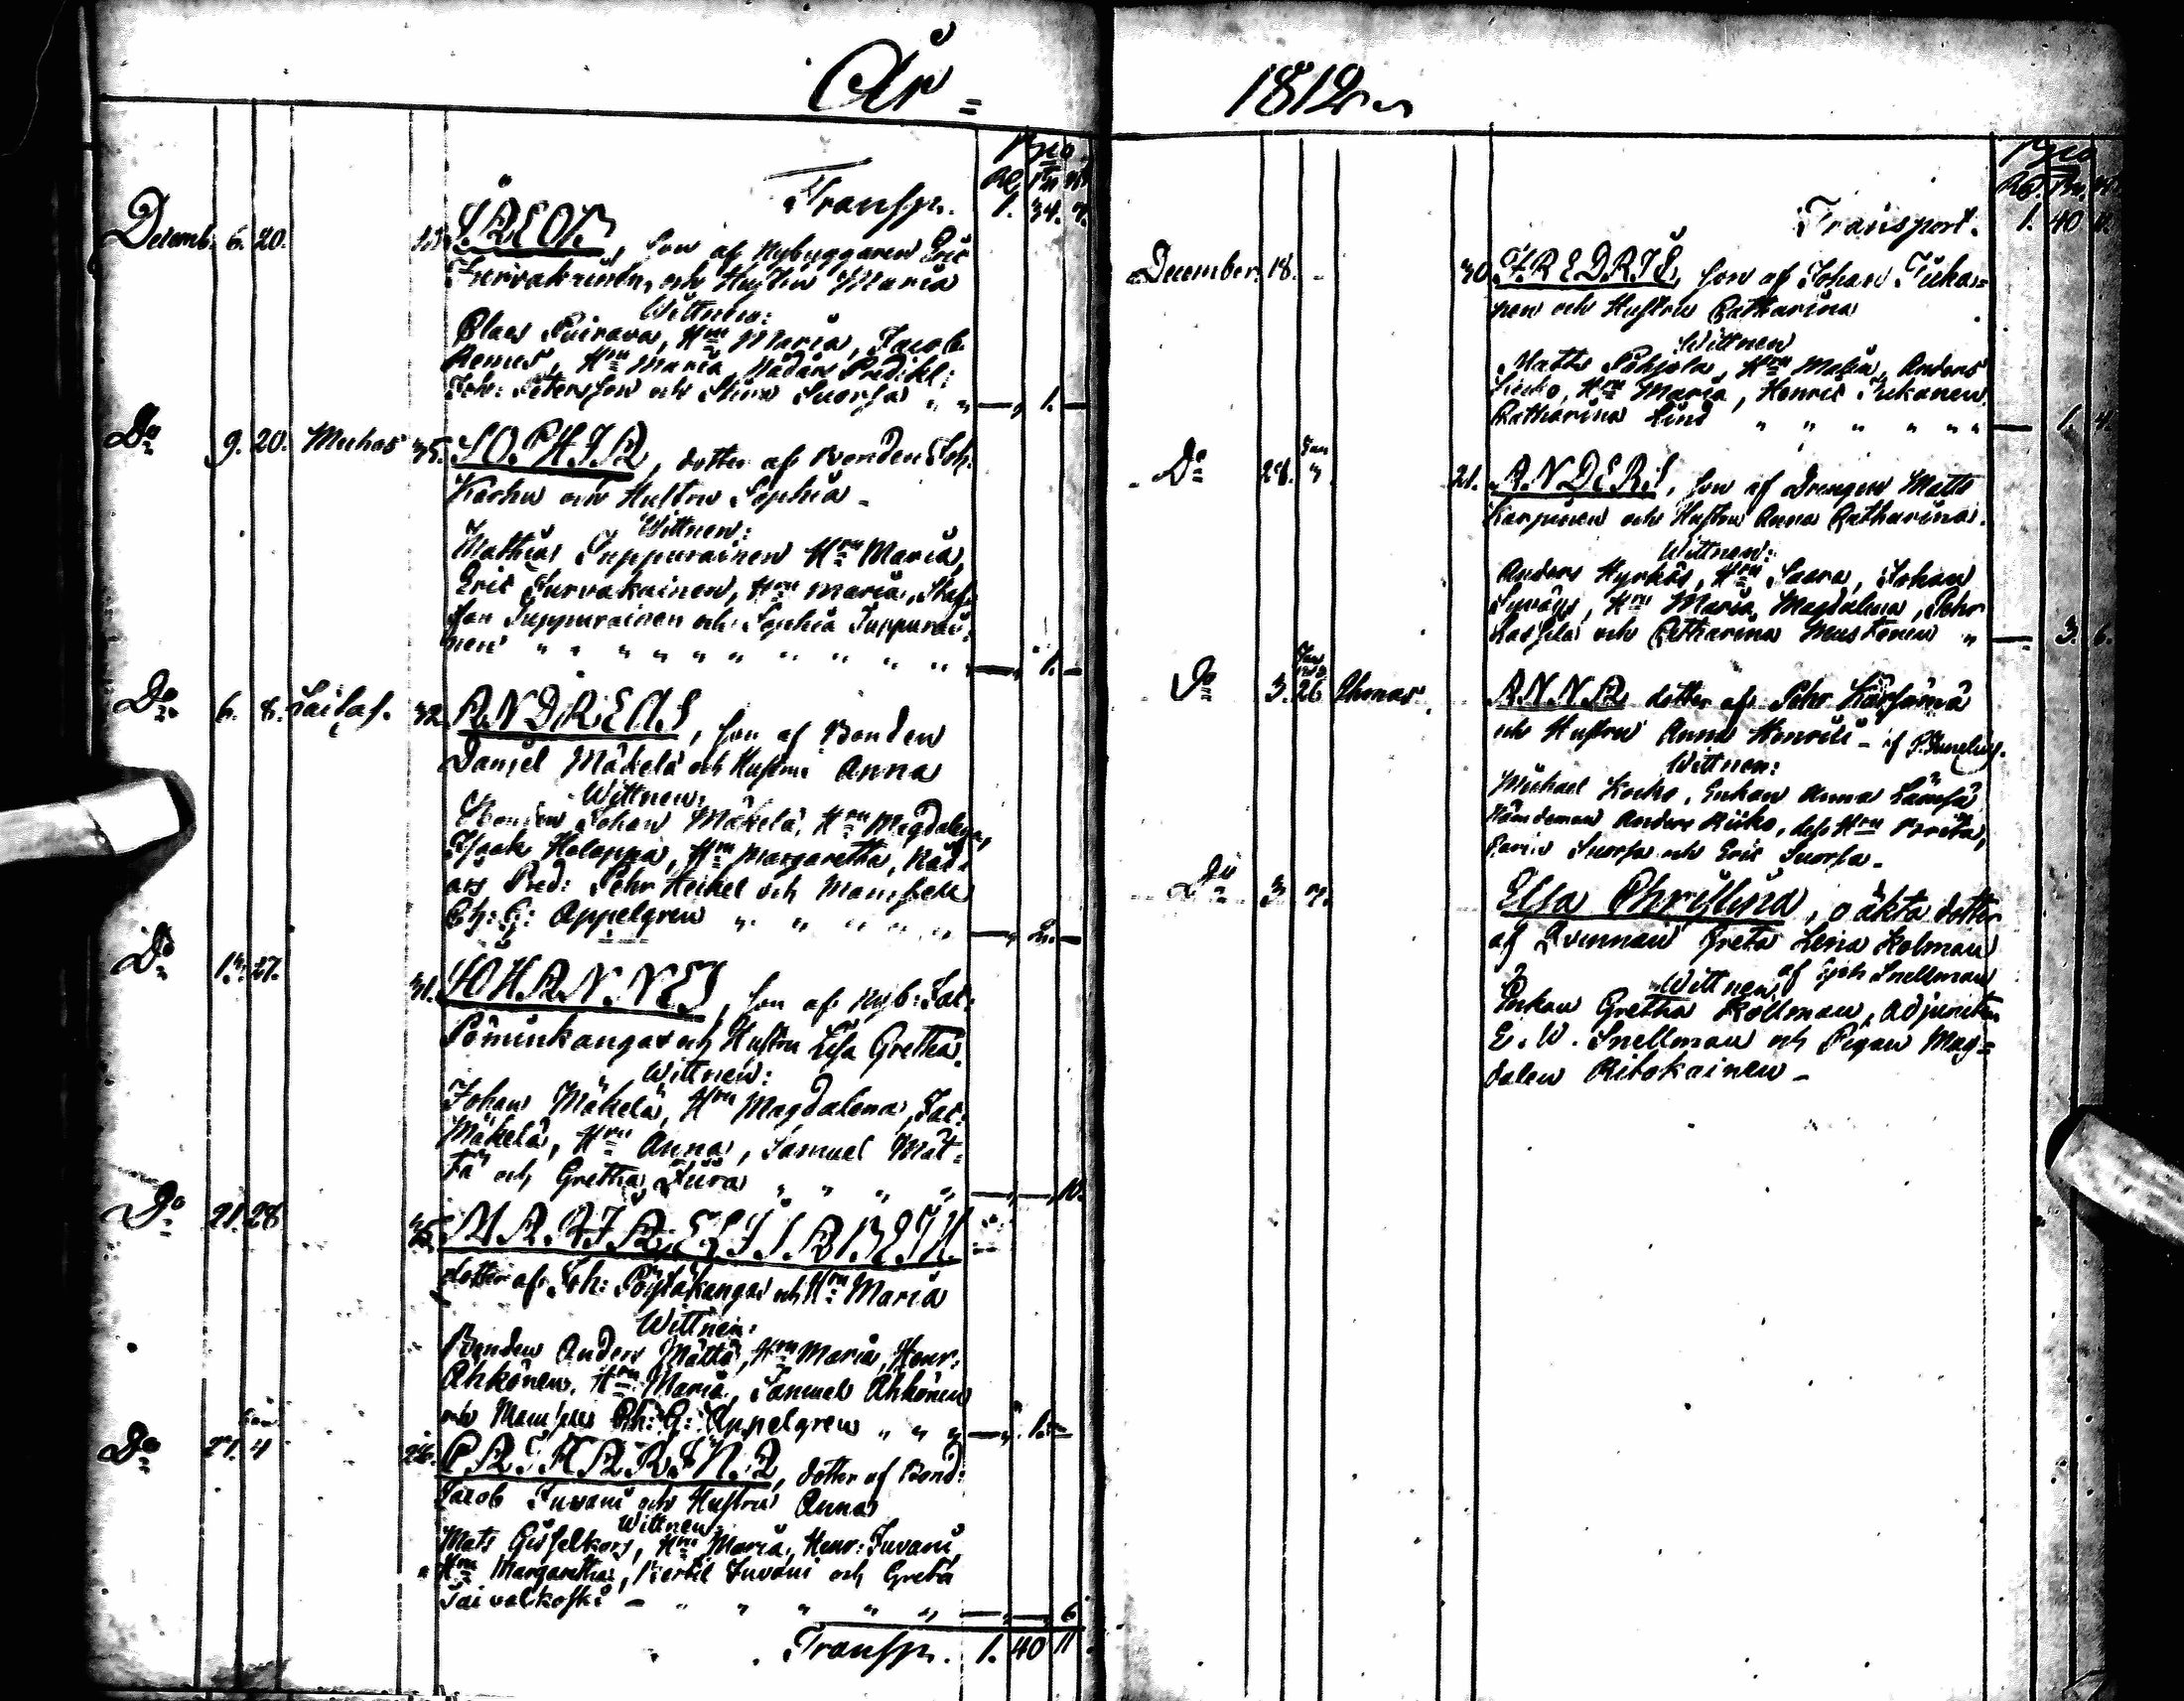 År =
Bco
Rd. sk. rst.
Transp. 1. 34. 7.
Decemb. 6. 20. JACOB, son af Nybyggaren Eric
Turvakainen, och Hustru Maria
Wittnen:
Claes Puirava, Hru Maria, Jacob
Hru Maria, Nådårs Predikt:
Joh: Petersson och Stina Suorsa " " — 1. —
Do 9. 20. Muhos 35. SOPHIA, dotter af Bonden Joh.
Karhu och Hustru Sophia -
Wittnen:
Mathias Juppurainen Hru Maria,
Eric Turvakainen, Hru Maria, Staf-
fan Juppurainen och Sophia Juppurai-
nen " " " " " " " " " " — 1. —
Do 6. 8. Sailas. 32 ANDREAS, son af Bonden
Daniel Mäkelä och Hustru Anna
Wittnen:
Bonden Johan Mäkelä, Hru Magdalena,
Isaak Holappa, Hru Margaretha, Nåd-
års Pred: Pehr Heikel och Mamsell
Ch: G: Appelgren " " " " " — 2. —
Do 27. 31. JOHANNES, son af Nyb: Jac:
och Hustru Lisa Gretha.
Wittnen:
Johan Mäkelä, Hru Magdalena, Jac:
Mäkelä, Hru Anna, Samuel Mät-
tä och Gretha " " " " — — 10.
Do 21. 28 MARIA ELISABETH
dotter af Joh: Pöytäkangas och Hru Maria
Wittnen:
Bonden Anders Mättä, Hru Maria, Henr:
Ahkonen, Hru Maria, Samuel Ahkonen
och Mamsell Ch: G: Appelgren " " " — 1. —
Do 27. 4 26. CATHARINA, dotter af Bond:
Jacob Juvani och Hustru Anna
Wittnen:
Mats Gisselkors, Hru Maria, Henr: Juvani
Hru Margaretha, Bertil Juvani och Greta
Taivalkoski - " " " " " — — 6
Transp. 1. 40 11
1812
Bco
Rd. sk. rst.
Transport. 1. 40 11.
December. 18. - 30. FREDRIC, son af Johan Tuka-
nen och Hustru Catharina
Wittnen
Matts Pohjola, Hru Maria, Anders
Hru Maria, Henric Tukanen
Catharina Lind " " " " " " — 1. 4.
Do 28. Jan 21. ANDERS, son af Drengen Matts
Karpinen och Hustru Anna Catharina.
Wittnen:
Anders Hyrkäs, Hru Saara, Johan
Hru Maria, Magdalena, Pehr
Lassila och Catharina Mustonen " — 3. 6.
Do 3. 26 Uhmas. ANNA dotter af Pehr
och Hustru Anna Henrici - af
Wittnen:
Michael Kocko, Enkan Anna Lämsä
Nämdeman Anders Kiiko, dess Hru Brita,
Carin Suorsa och Eric Suorsa -
Do 3. 7. Elsa Christina, oäkta dotter
af Qvinnan Greta Lena Kolman
af Snellman
Wittnen
Enkan Gretha Kollman, Adjuncten
E. W. Snellman och Pigan Mag=
dalen Ritokainen -